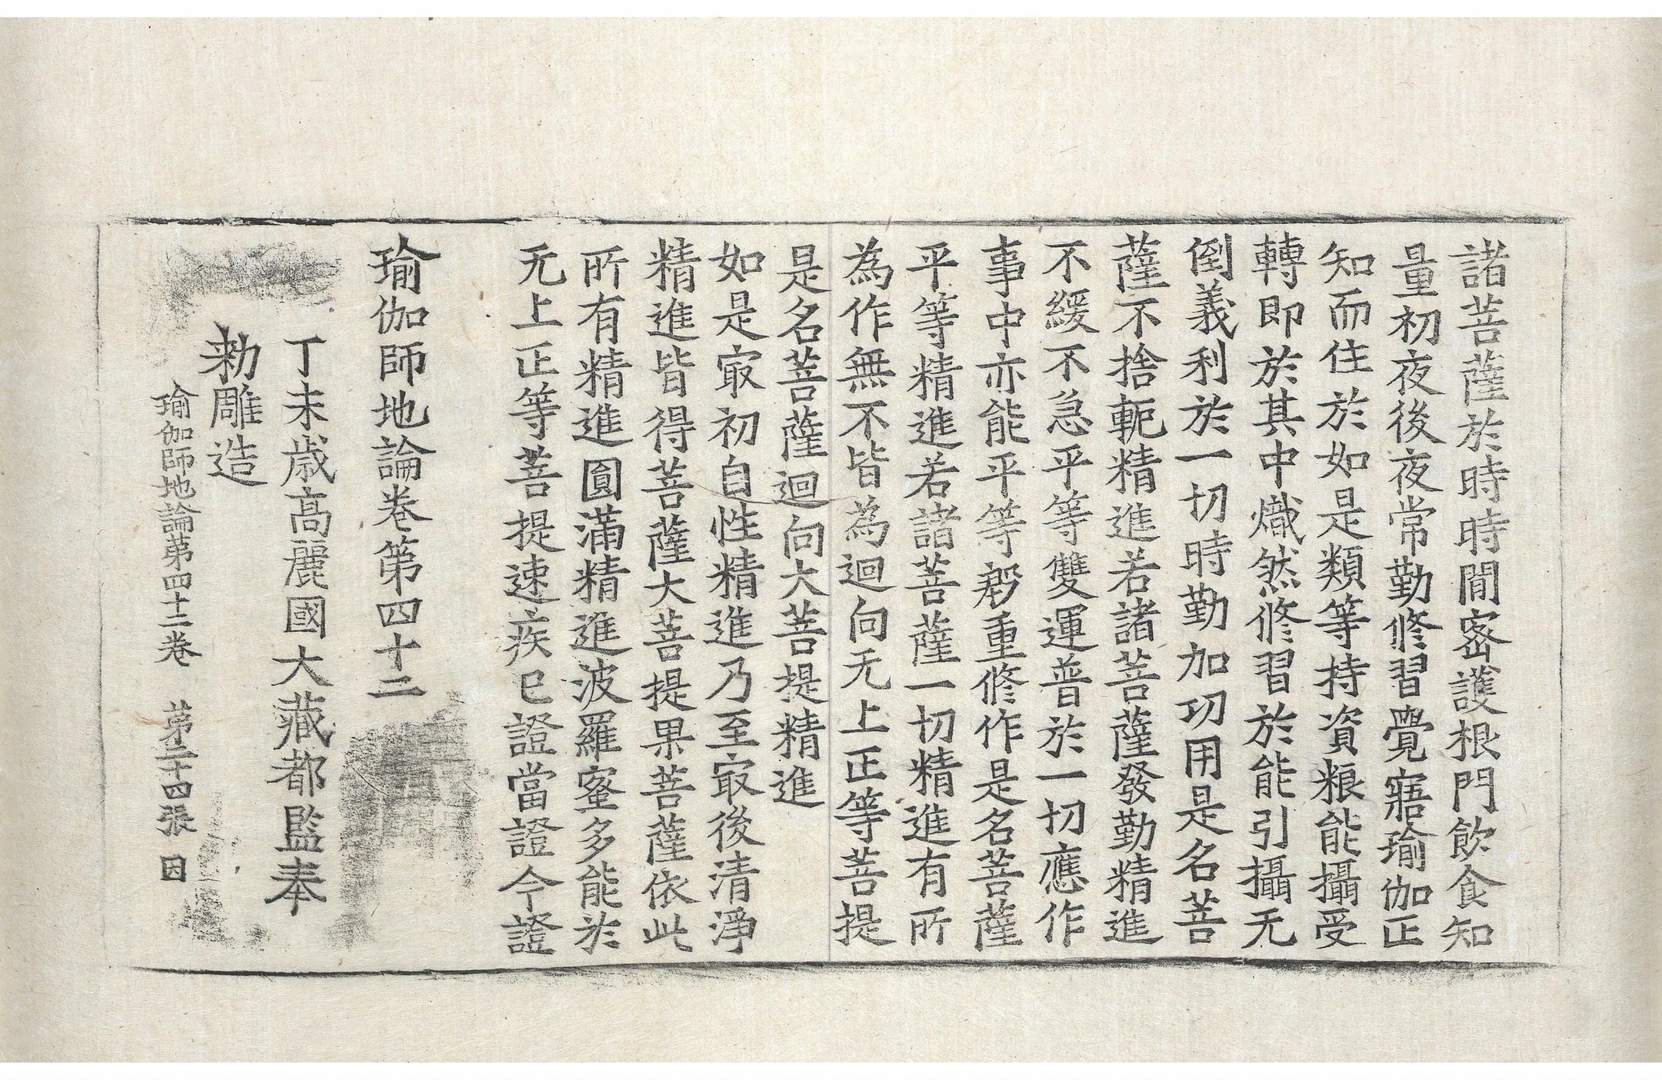 諸菩薩於時時閒密護根門飮食知
量初夜後夜常勤修習覺寤瑜伽正
知而住於如是類等持資粮能攝受
轉即於其中熾然修習於能引攝无
倒義利於一切時勤加功用是名菩
薩不捨軛精進若諸菩薩發勤精進
不緩不急平等雙運普於一切應作
事中亦能平等慇重修作是名菩薩
平等精進若諸菩薩一切精進有所
為作無不皆為迴向无上正等菩提
是名菩薩迴向大菩提精進
如是㝡初自性精進乃至㝡後清淨
精進皆得菩薩大菩提果菩薩依此
所有精進圓滿精進波羅蜜多能於
无上正等菩提速疾已證當證今證
瑜伽師地論卷第四十二
丁未歳高麗國大藏都監奉
勑雕造
瑜伽師地論第四十二卷 第二十四張 因